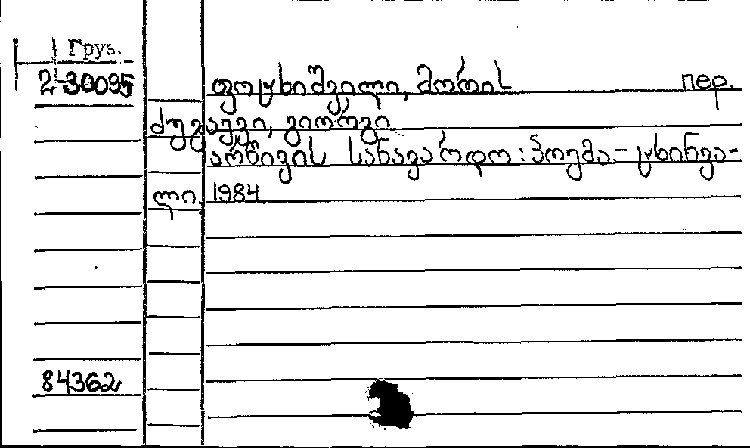 Груз.
2-30095
ფოცხიშვილი, მორის пер.
ძუგაევი, გიორგი
არჩივის სანავარდო: პოემა - ცხინვა-
ლი, 1984
84362